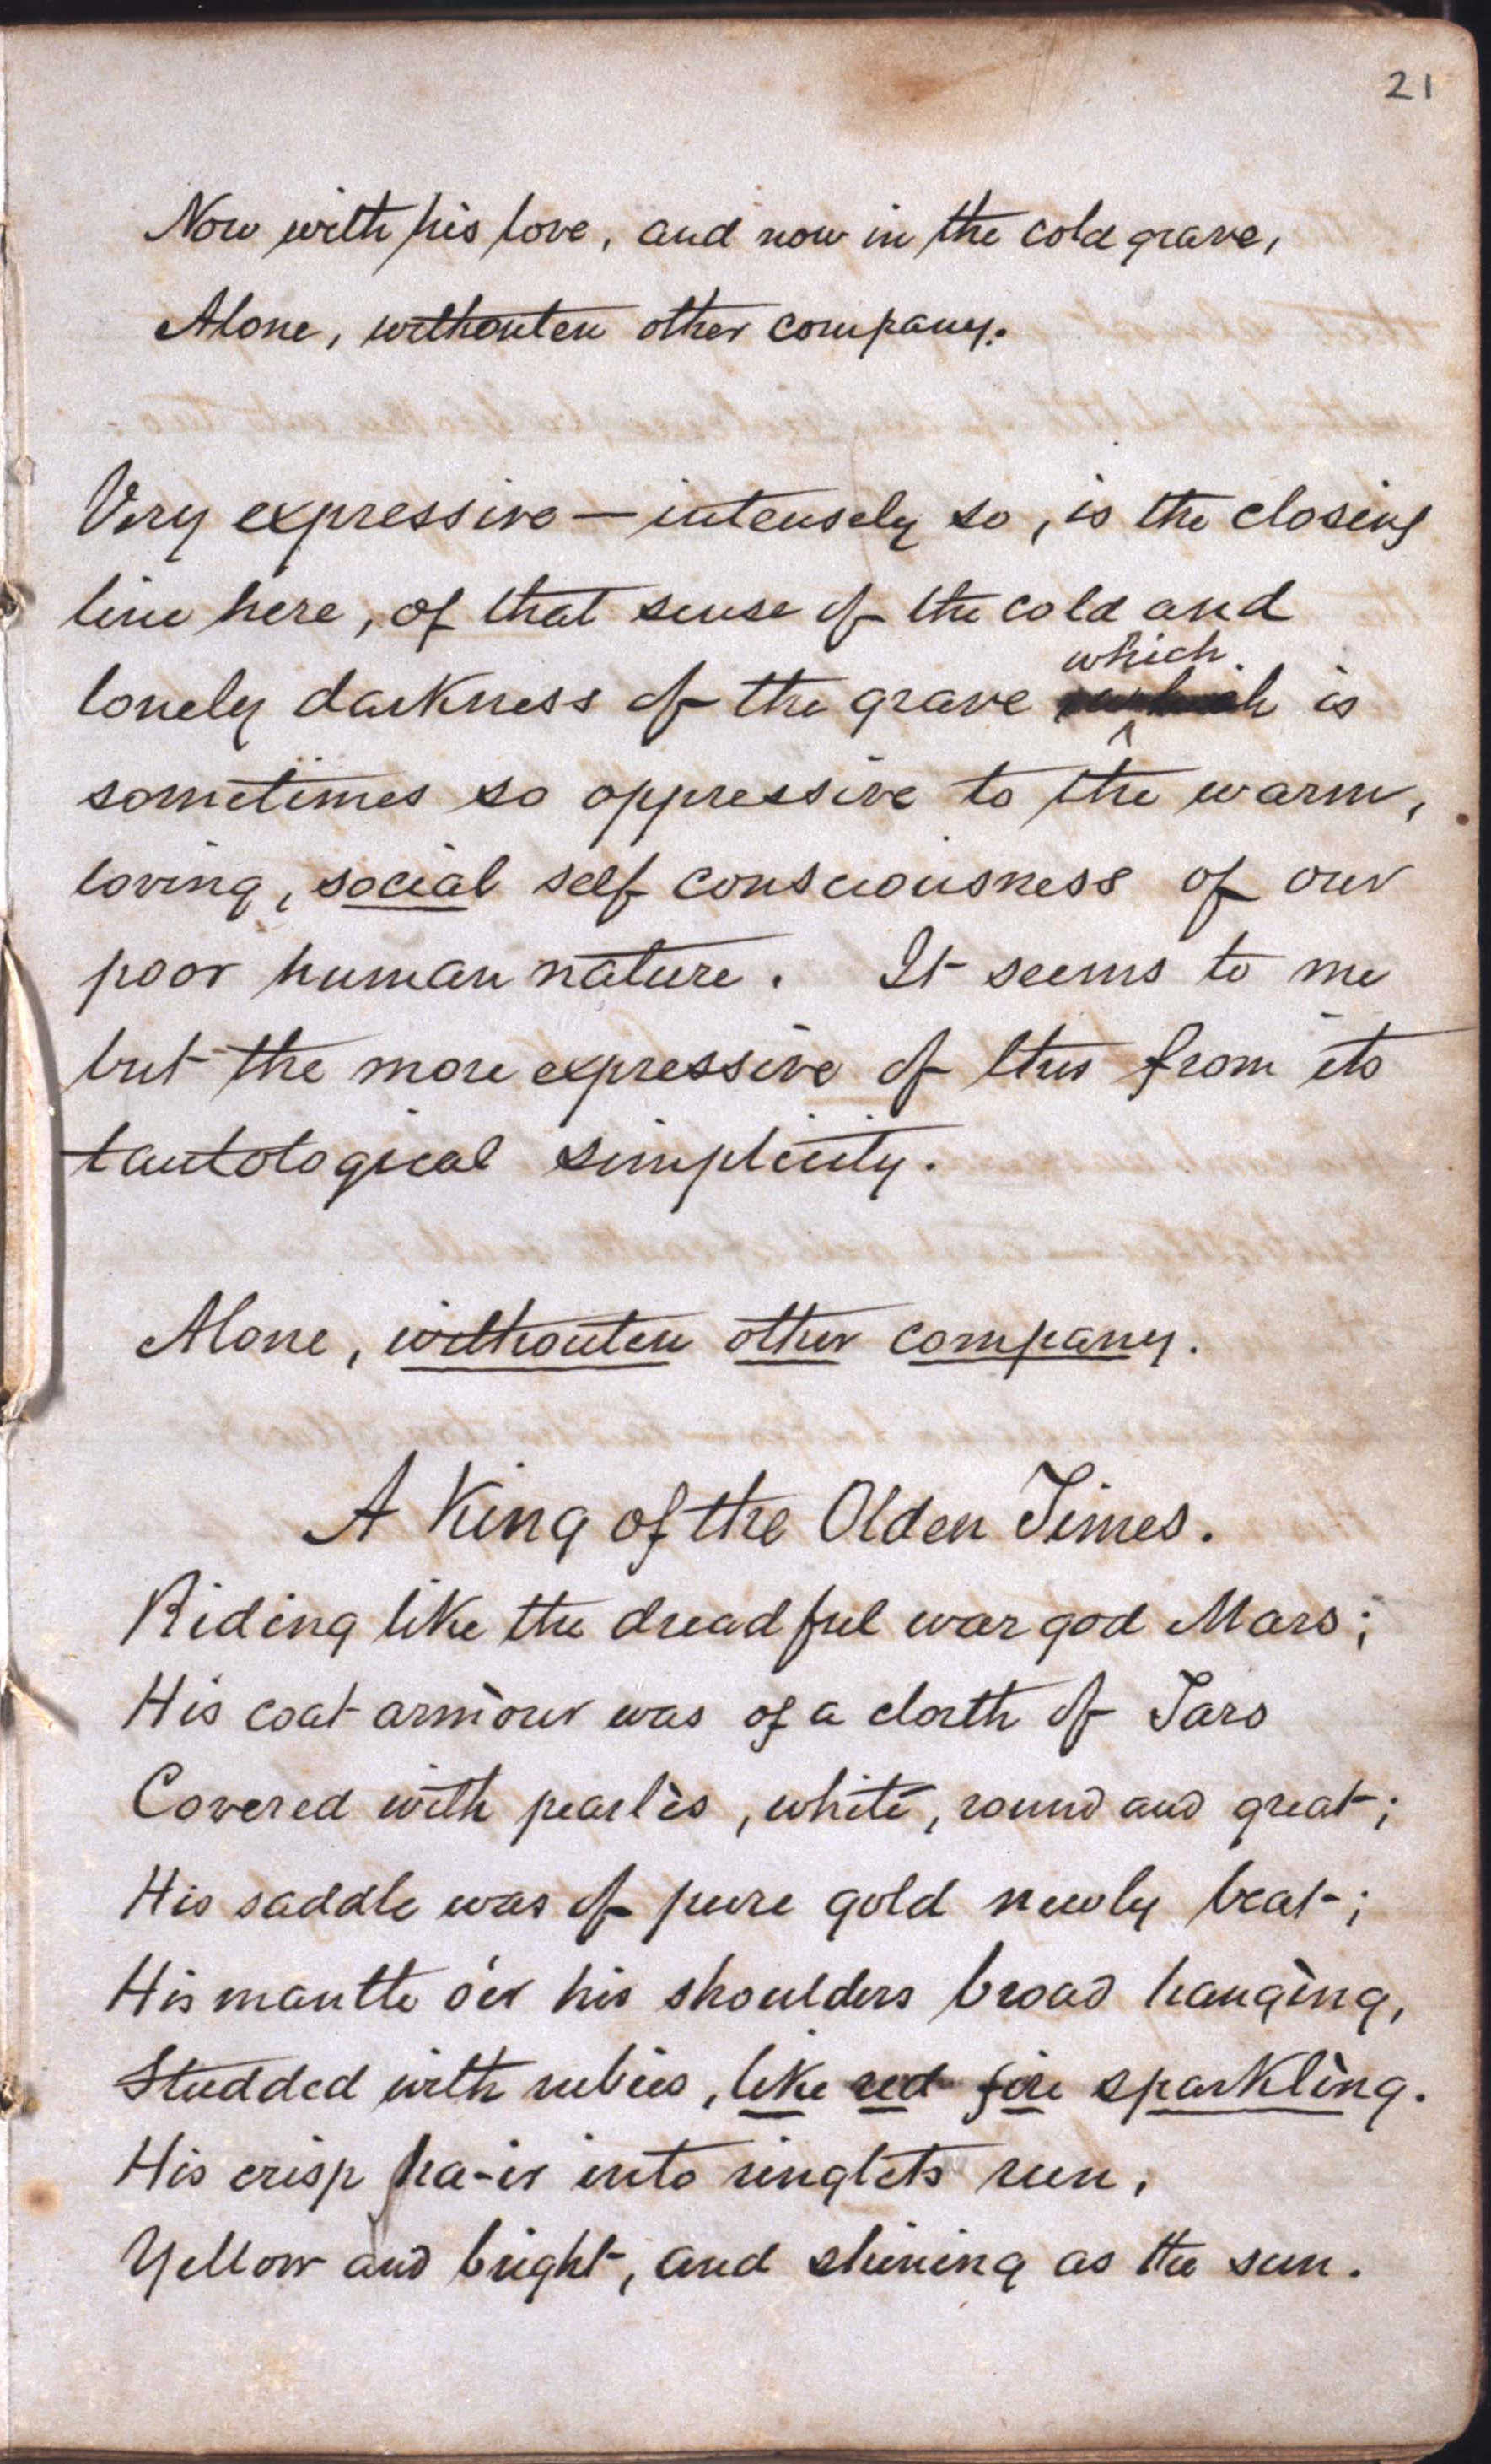 21
Now with his love, and now in the cold grave,
Alone, withouten other company.
Very expressive — intensely so, is the closing
line here, of that sense of the cold and
which
lonely darkness of the grave is
sometimes so oppressive to the warm,
loving, social self consciousness of our
poor human nature. It seems to me
but the more expressive of this from its
tautological simplicity.
Alone, withouten other company.
A King of the Olden Times.
Riding like the dreadful war god Mars;
His coat armòur was of a cloth of Tars
Covered with pearlès, white, round and great;
His saddle was of pure gold newly beat;
His mantle o'er his shoulders broad hangìng,
Studded with rubies, like red fire sparklìng.
His crisp ha-ir into ringlets run,
Yellow and bright, and shining as the sun.